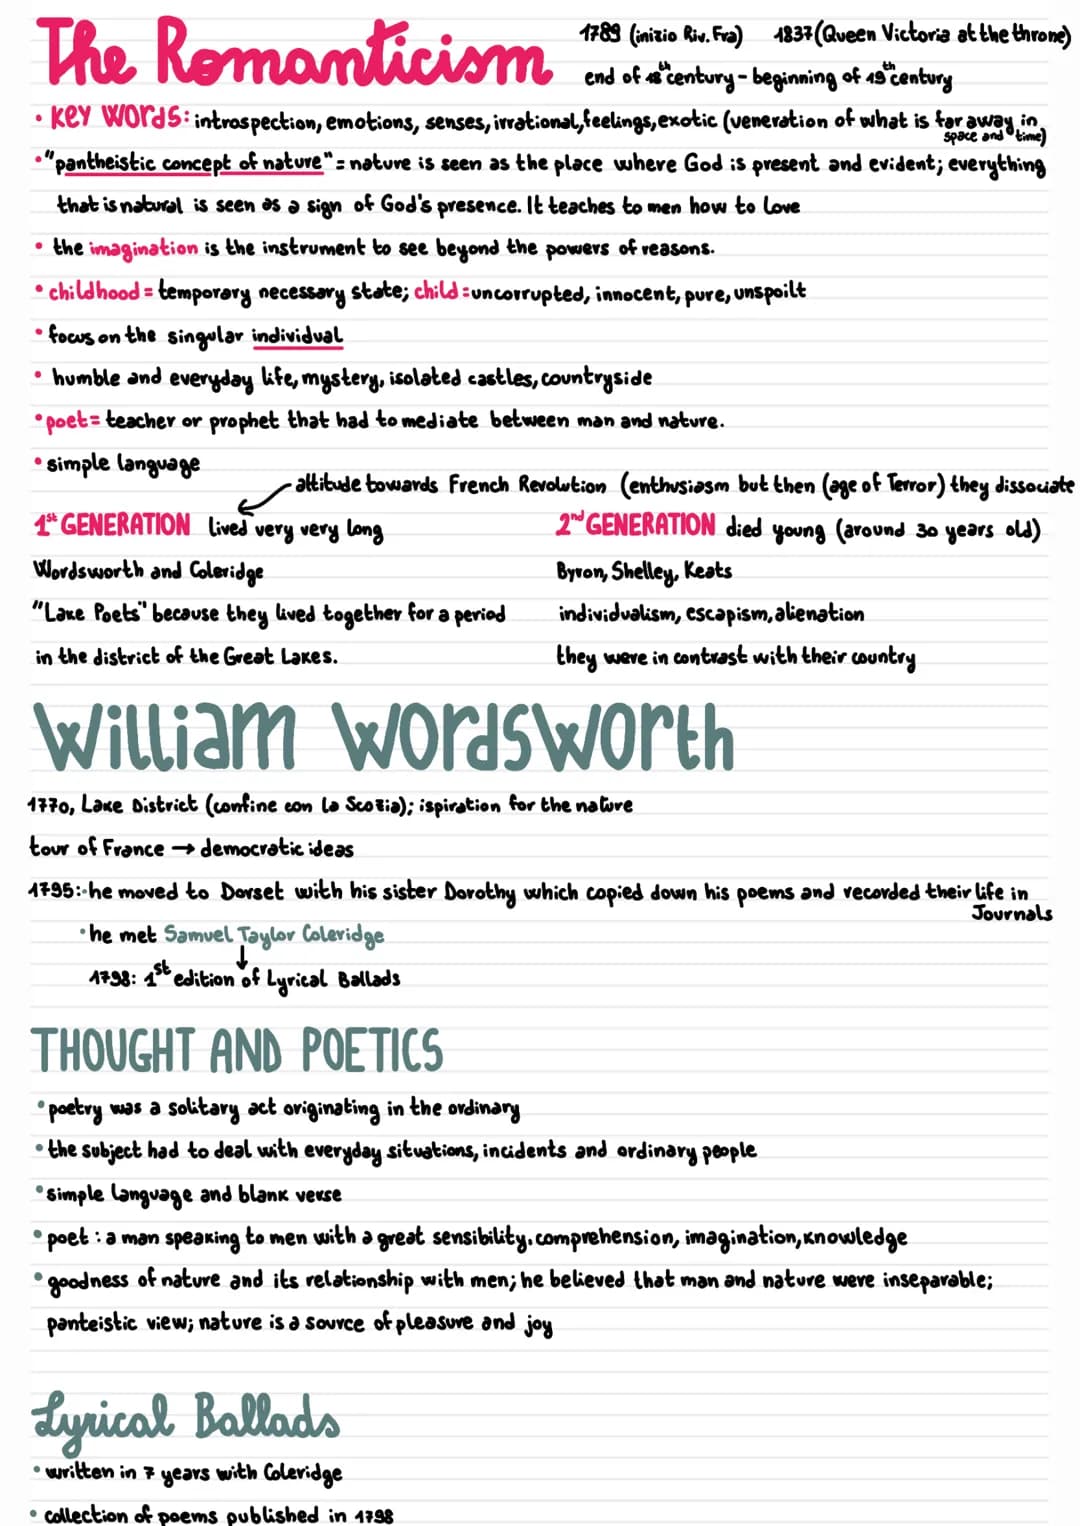 The Romanticism
1789 (inizio Riv. Fra) 1837 (Queen Victoria at the throne)
end of 18th century - beginning of 19th century
• Key words: introspection, emotions, senses, irrational, feelings, exotic (veneration of what is far away in space and time)
• "pantheistic concept of nature" = nature is seen as the place where God is present and evident; everything
that is natural is seen as a sign of God's presence. It teaches to men how to love
• the imagination is the instrument to see beyond the powers of reasons.
• childhood = temporary necessary state; child = uncorrupted, innocent, pure, unspoilt
• focus on the singular individual
• humble and everyday life, mystery, isolated castles, countryside
• poet = teacher or prophet that had to mediate between man and nature.
• simple language
attitude towards French Revolution (enthusiasm but then (age of Terror) they dissociate
1st GENERATION lived very very long
Wordsworth and Coleridge
"Lake Poets" because they lived together for a period
in the district of the Great Lakes.
2nd GENERATION died young (around 30 years old)
Byron, Shelley, Keats
individualism, escapism, alienation
they were in contrast with their country
William Wordsworth
1770, Lake District (confine con la Scozia); ispiration for the nature
tour of France → democratic ideas
1795: • he moved to Dorset with his sister Dorothy which copied down his poems and recorded their life in Journals
• he met Samuel Taylor Coleridge
↓
1798: 1st edition of Lyrical Ballads
THOUGHT AND POETICS
• poetry was a solitary act originating in the ordinary
• the subject had to deal with everyday situations, incidents and ordinary people
• simple language and blank verse
• poet : a man speaking to men with a great sensibility, comprehension, imagination, knowledge
• goodness of nature and its relationship with men; he believed that man and nature were inseparable;
panteistic view; nature is a source of pleasure and joy
Lyrical Ballads
• written in 7 years with Coleridge
• collection of poems published in 1798